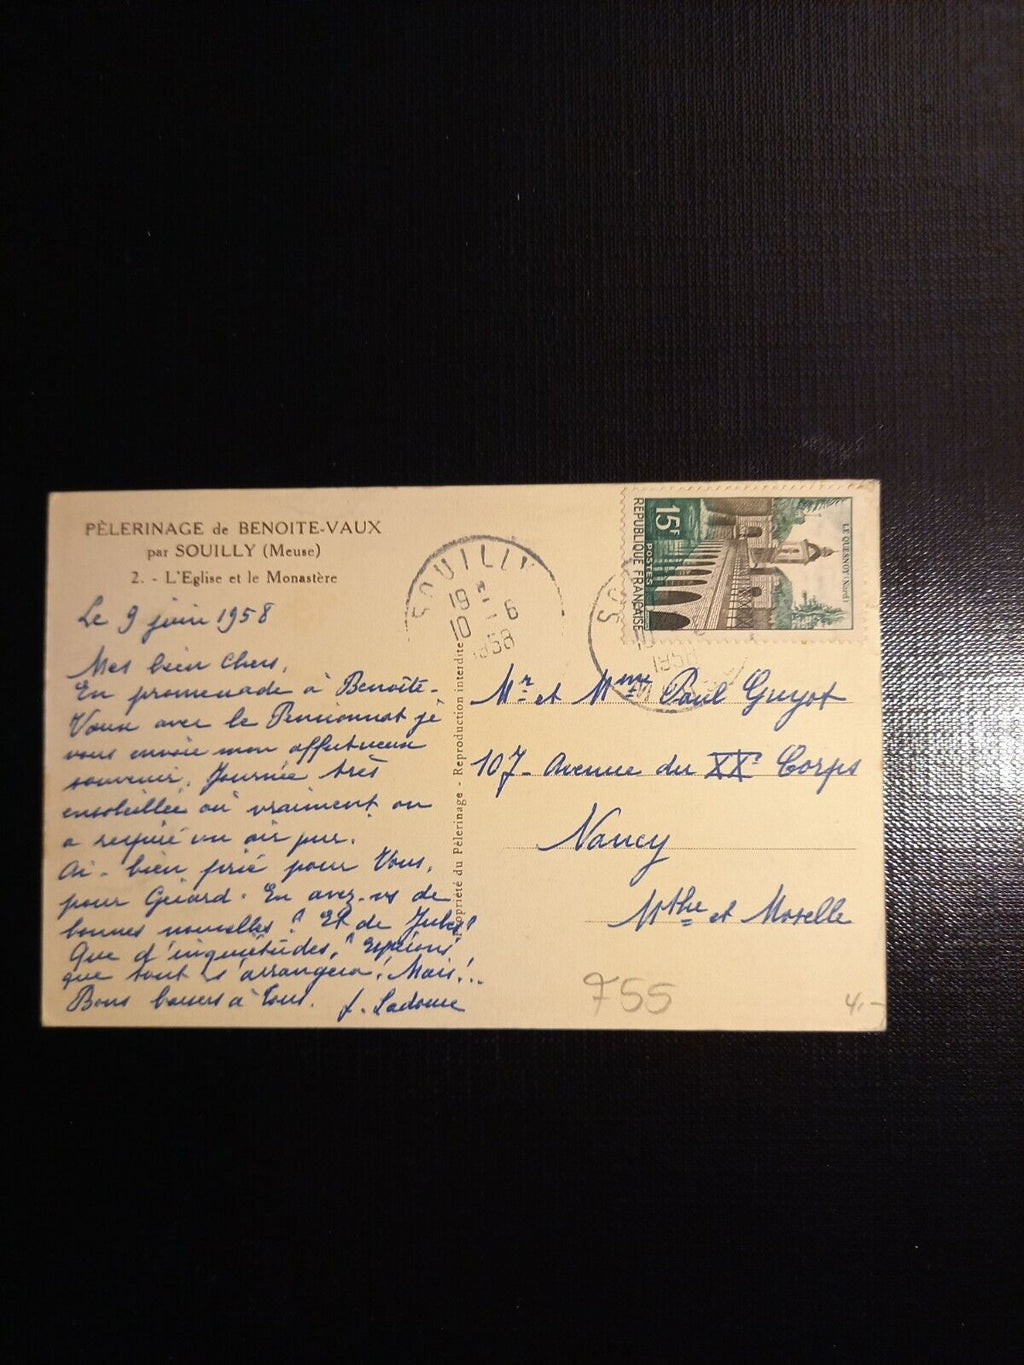 PÈLERINAGE de BENOITE-VAUX
par SOUILLY (Meuse)
2. - L'Eglise et le Monastère
Le 9 juin 1958
Mes bien Chers,
En promenade à Benoîte-
Vaux avec le Pensionnat je
vous envoie mon affectueux
souvenir. Journée très
ensoleillée où vraiment on
a respiré un air pur.
Ai - bien prié pour Vous,
pour Gérard. En avez-vs de
bonnes nouvelles ? Et de
Que d'inquiétudes, ! Espérons
que tout s'arrangera ! Mais !...
Bons baisers à Tous.
Propriété du Pèlerinage - Reproduction interdite
SOUILLY
19 H
10 - 6
1958
15F
POSTES
REPUBLIQUE FRANÇAISE
LE QUESNOY (Nord)
1958
Mr et Mme Paul Guyot
107 - Avenue du XXe Corps
Nancy
Mthe et Moselle
755
4,-